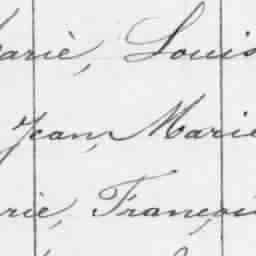 arie, Louis
Jean, Marie
rie, Françoi